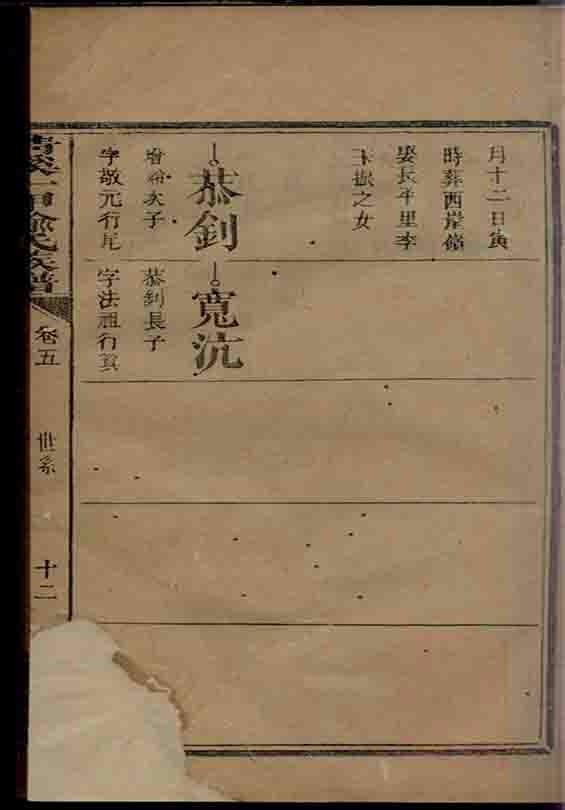 月十二日寅
時葬西岸嶺
娶長平里李
玉振之女
恭釗
次子
字敬元行尾
寬沆
恭釗長子
字法祖行箕
氏族譜
卷五
世系
十二